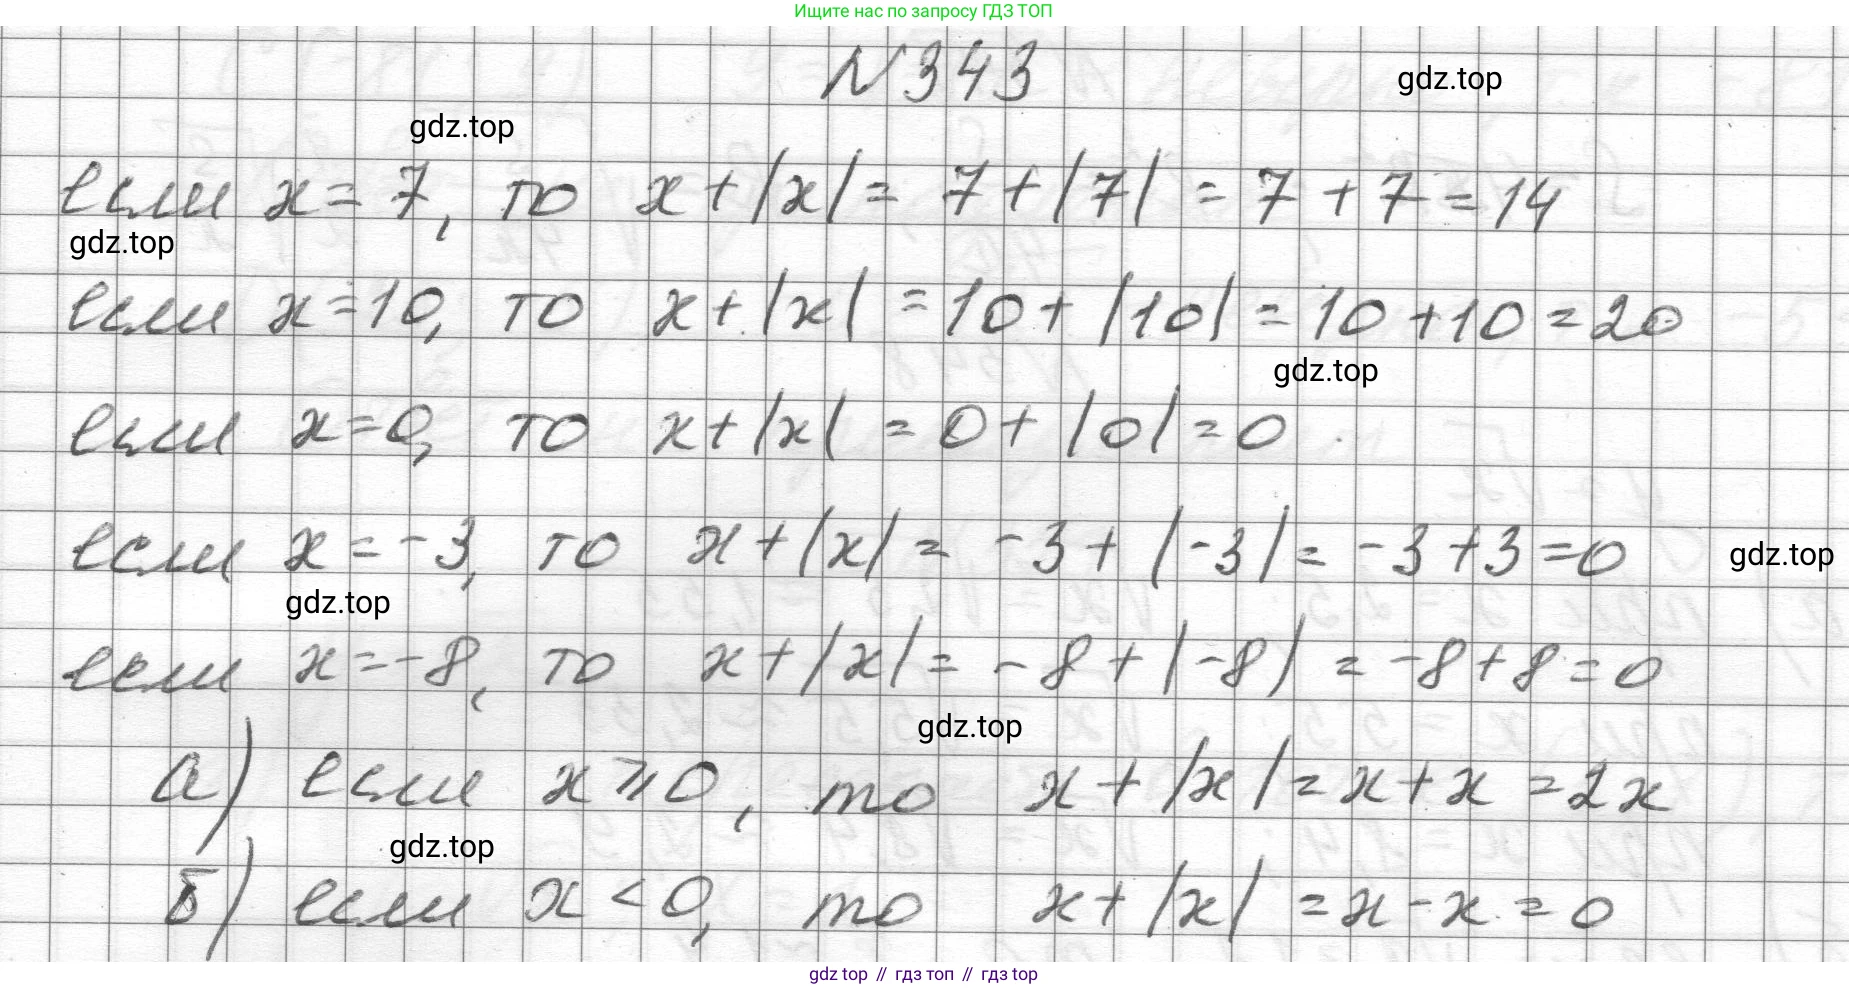 Ищите нас по запросу ГДЗ ТОП
N 343
gdz.top
gdz.top
если x = 7, то x + |x| = 7 + |7| = 7 + 7 = 14
gdz.top
если x = 10, то x + |x| = 10 + |10| = 10 + 10 = 20
gdz.top
если x = 0, то x + |x| = 0 + |0| = 0
если x = -3, то x + |x| = -3 + |-3| = -3 + 3 = 0
gdz.top
gdz.top
если x = -8, то x + |x| = -8 + |-8| = -8 + 8 = 0
gdz.top
а) если x ⩾ 0, то x + |x| = x + x = 2x
gdz.top
б) если x < 0, то x + |x| = x - x = 0
gdz top // гдз топ // gdz top